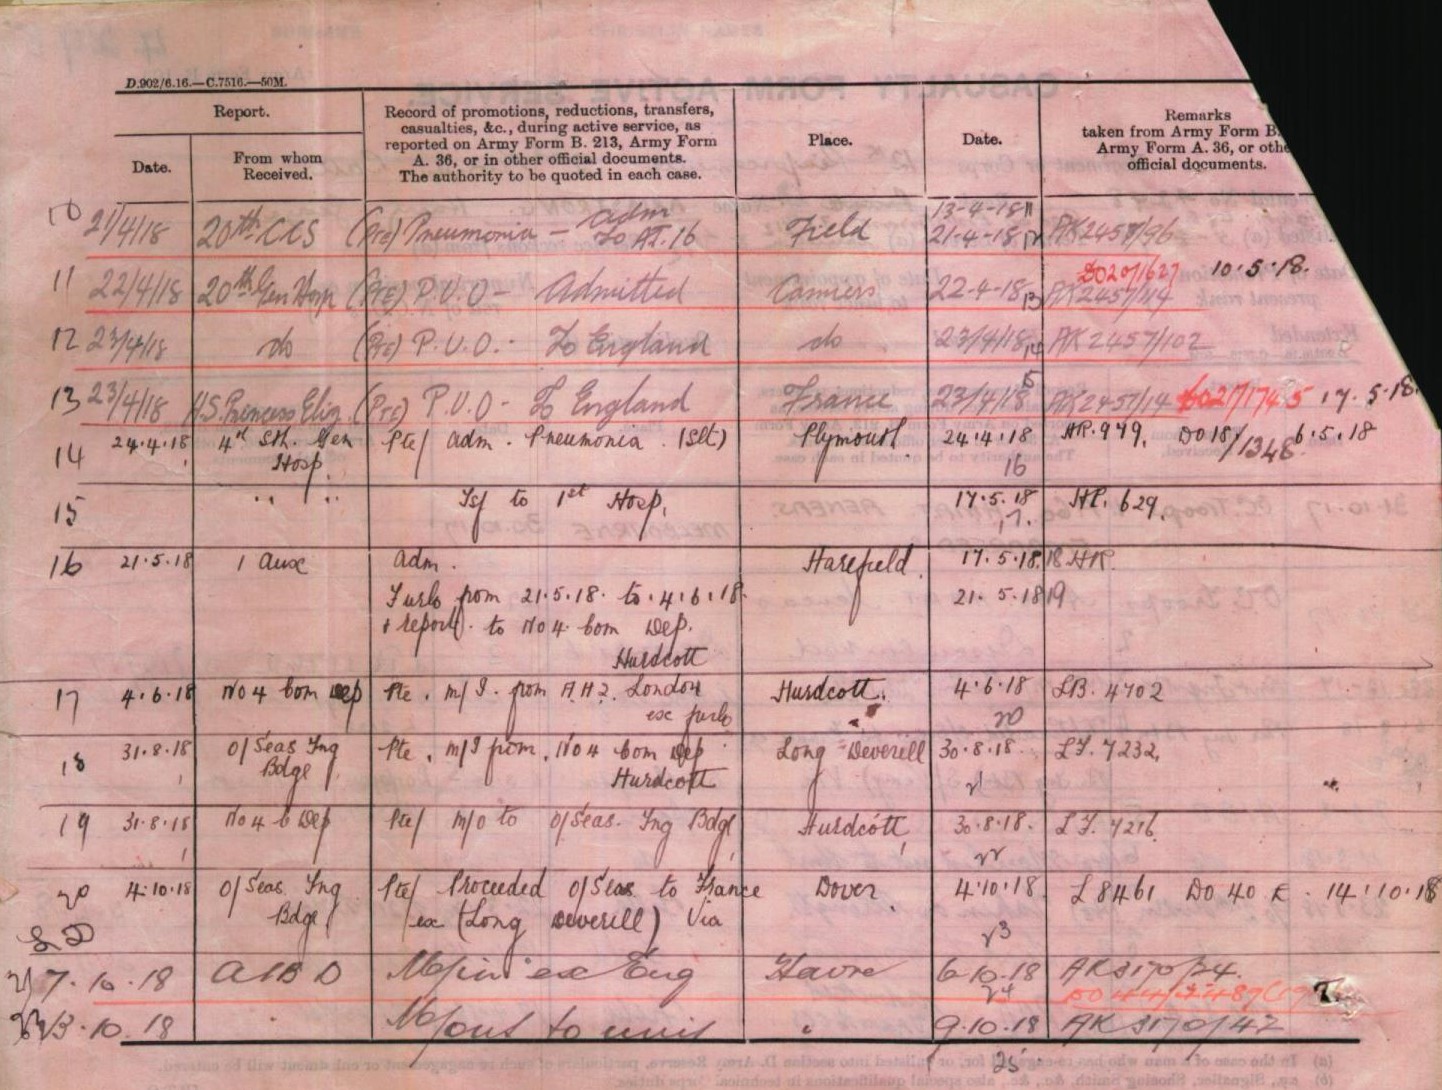 D.902/6.16.—C.7516.—50M.
Report.
Date.
From whom
Received.
Record of promotions, reductions, transfers,
casualties, &c., during active service, as
reported on Army Form B. 213, Army Form
A. 36, or in other official documents.
The authority to be quoted in each case.
Place.
Date.
Remarks
taken from Army Form B.
Army Form A. 36, or othe
official documents.
10 21/4/18 20th CCS (Pte) Pneumonia — adm Field 13-4-18 11
To AT. 16 21-4-18 12 AK2457/96
DO20/1627 10.5.18.
11 22/4/18 20th Gen Hosp (Pte) P.U.O - Admitted Camiers 22-4-18 13 AK2457/114
12 23/4/18 do (Pte) P.U.O. - To England do 23/4/18 14 AK2457/102
13 23/4/18 H.S. Princess Eliz (Pte) P.U.O - To England France 23/4/18 15 AK2457/14 DO27/1745 17.5.18.
14 24.4.18 4th Sth. Gen Pte/ adm. Pneumonia. (Slt) Plymouth 24.4.18 HR.979. DO18/1348 6.5.18
Hosp. 16
15 " " Tsf to 1st Hosp. 17.5.18 HR. 629.
17.
16 21.5.18 1 Aux Adm. Harefield. 17.5.18. 18 HR.
Furlo from 21.5.18. to 4.6.18. 21.5.18 19
& report. to No 4 Com Dep.
Hurdcott
17 4.6.18 No 4 Com Dep Pte. m/I. from A.H.2. London Hurdcott. 4.6.18 LB. 4702
ex furlo 20
18 31.8.18 O/Seas Tng Pte. m/I from. No 4 Com Dep Long Deverill 30.8.18. LF. 7232.
Bdge Hurdcott 21
19 31.8.18 No 4 C Dep Pte/ m/o to O/Seas. Tng Bdge Hurdcott, 30.8.18. LF. 7216.
22
20 4.10.18 O/Seas Tng Pte/ Proceeded O/Seas to France Dover. 4.10.18 L8461 DO 40 14.10.18
Bdge ex (Long Deverill) Via 23
21 7.10.18 A I B D M/in ex Eng Havre 6-10.18 AK3170/24.
24
22 13.10.18 M/out to unit " 9.10.18 AK 3170/42
25